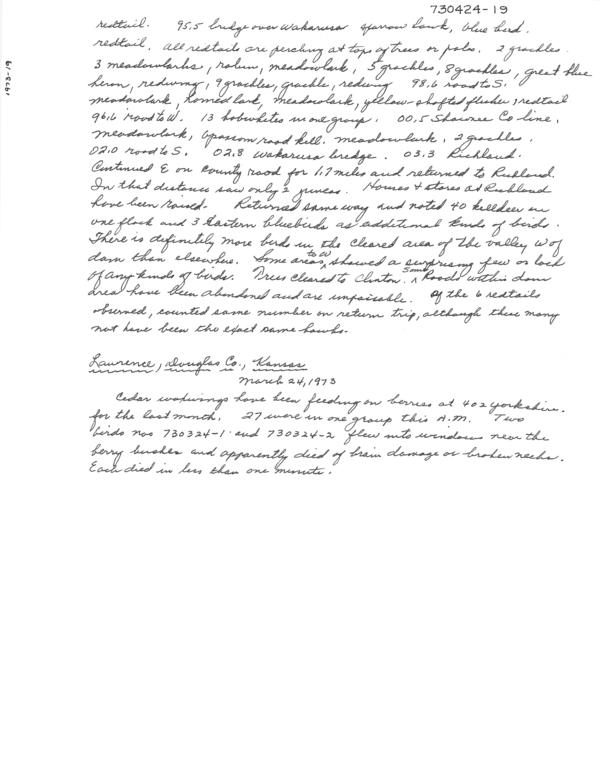 730424-19
1973-19
redtail. 95.5 bridge over Wakarusa sparrow hawk, blue bird.
redtail. all redtails are perching at tops of trees or poles. 2 grackles.
3 meadowlarks, robin, meadowlark, 5 grackles, 8 grackles, great blue
heron, redwing, 9 grackles, grackle, redwing 98.6 road to S.
meadowlark, horned lark, meadowlark, yellow-shafted flicker, redtail
96.6 road to W. 13 bobwhites in one group. 00.5 Shawnee Co line.
meadowlark, opossum road kill. meadowlark, 2 grackles.
02.0 road to S. 02.8 Wakarusa bridge. 03.3 Richland.
Continued E on county road for 1.7 miles and returned to Richland.
In that distance saw only 2 juncos. Houses & stores at Richland
have been razed. Returned same way and noted 40 killdeer in
one flock and 3 Eastern bluebirds as additional kinds of birds.
There is definitely more birds in the cleared area of the valley W of
dam than elsewhere. Some areas to W showed a surprising few or lack
of any kinds of birds. Trees cleared to Clinton. Some Roads within dam
area have been abandoned and are impassible. Of the 6 redtails
observed, counted same number on return trip, although these many
not have been the exact same hawks.
Lawrence, Douglas Co., Kansas
March 24, 1973
Cedar waxwings have been feeding on berries at 402 Yorkshire.
for the last month. 27 were in one group this A.M. Two
birds nos 730324-1 and 730324-2 flew into windows near the
berry bushes and apparently died of brain damage or broken necks.
Each died in less than one minute.